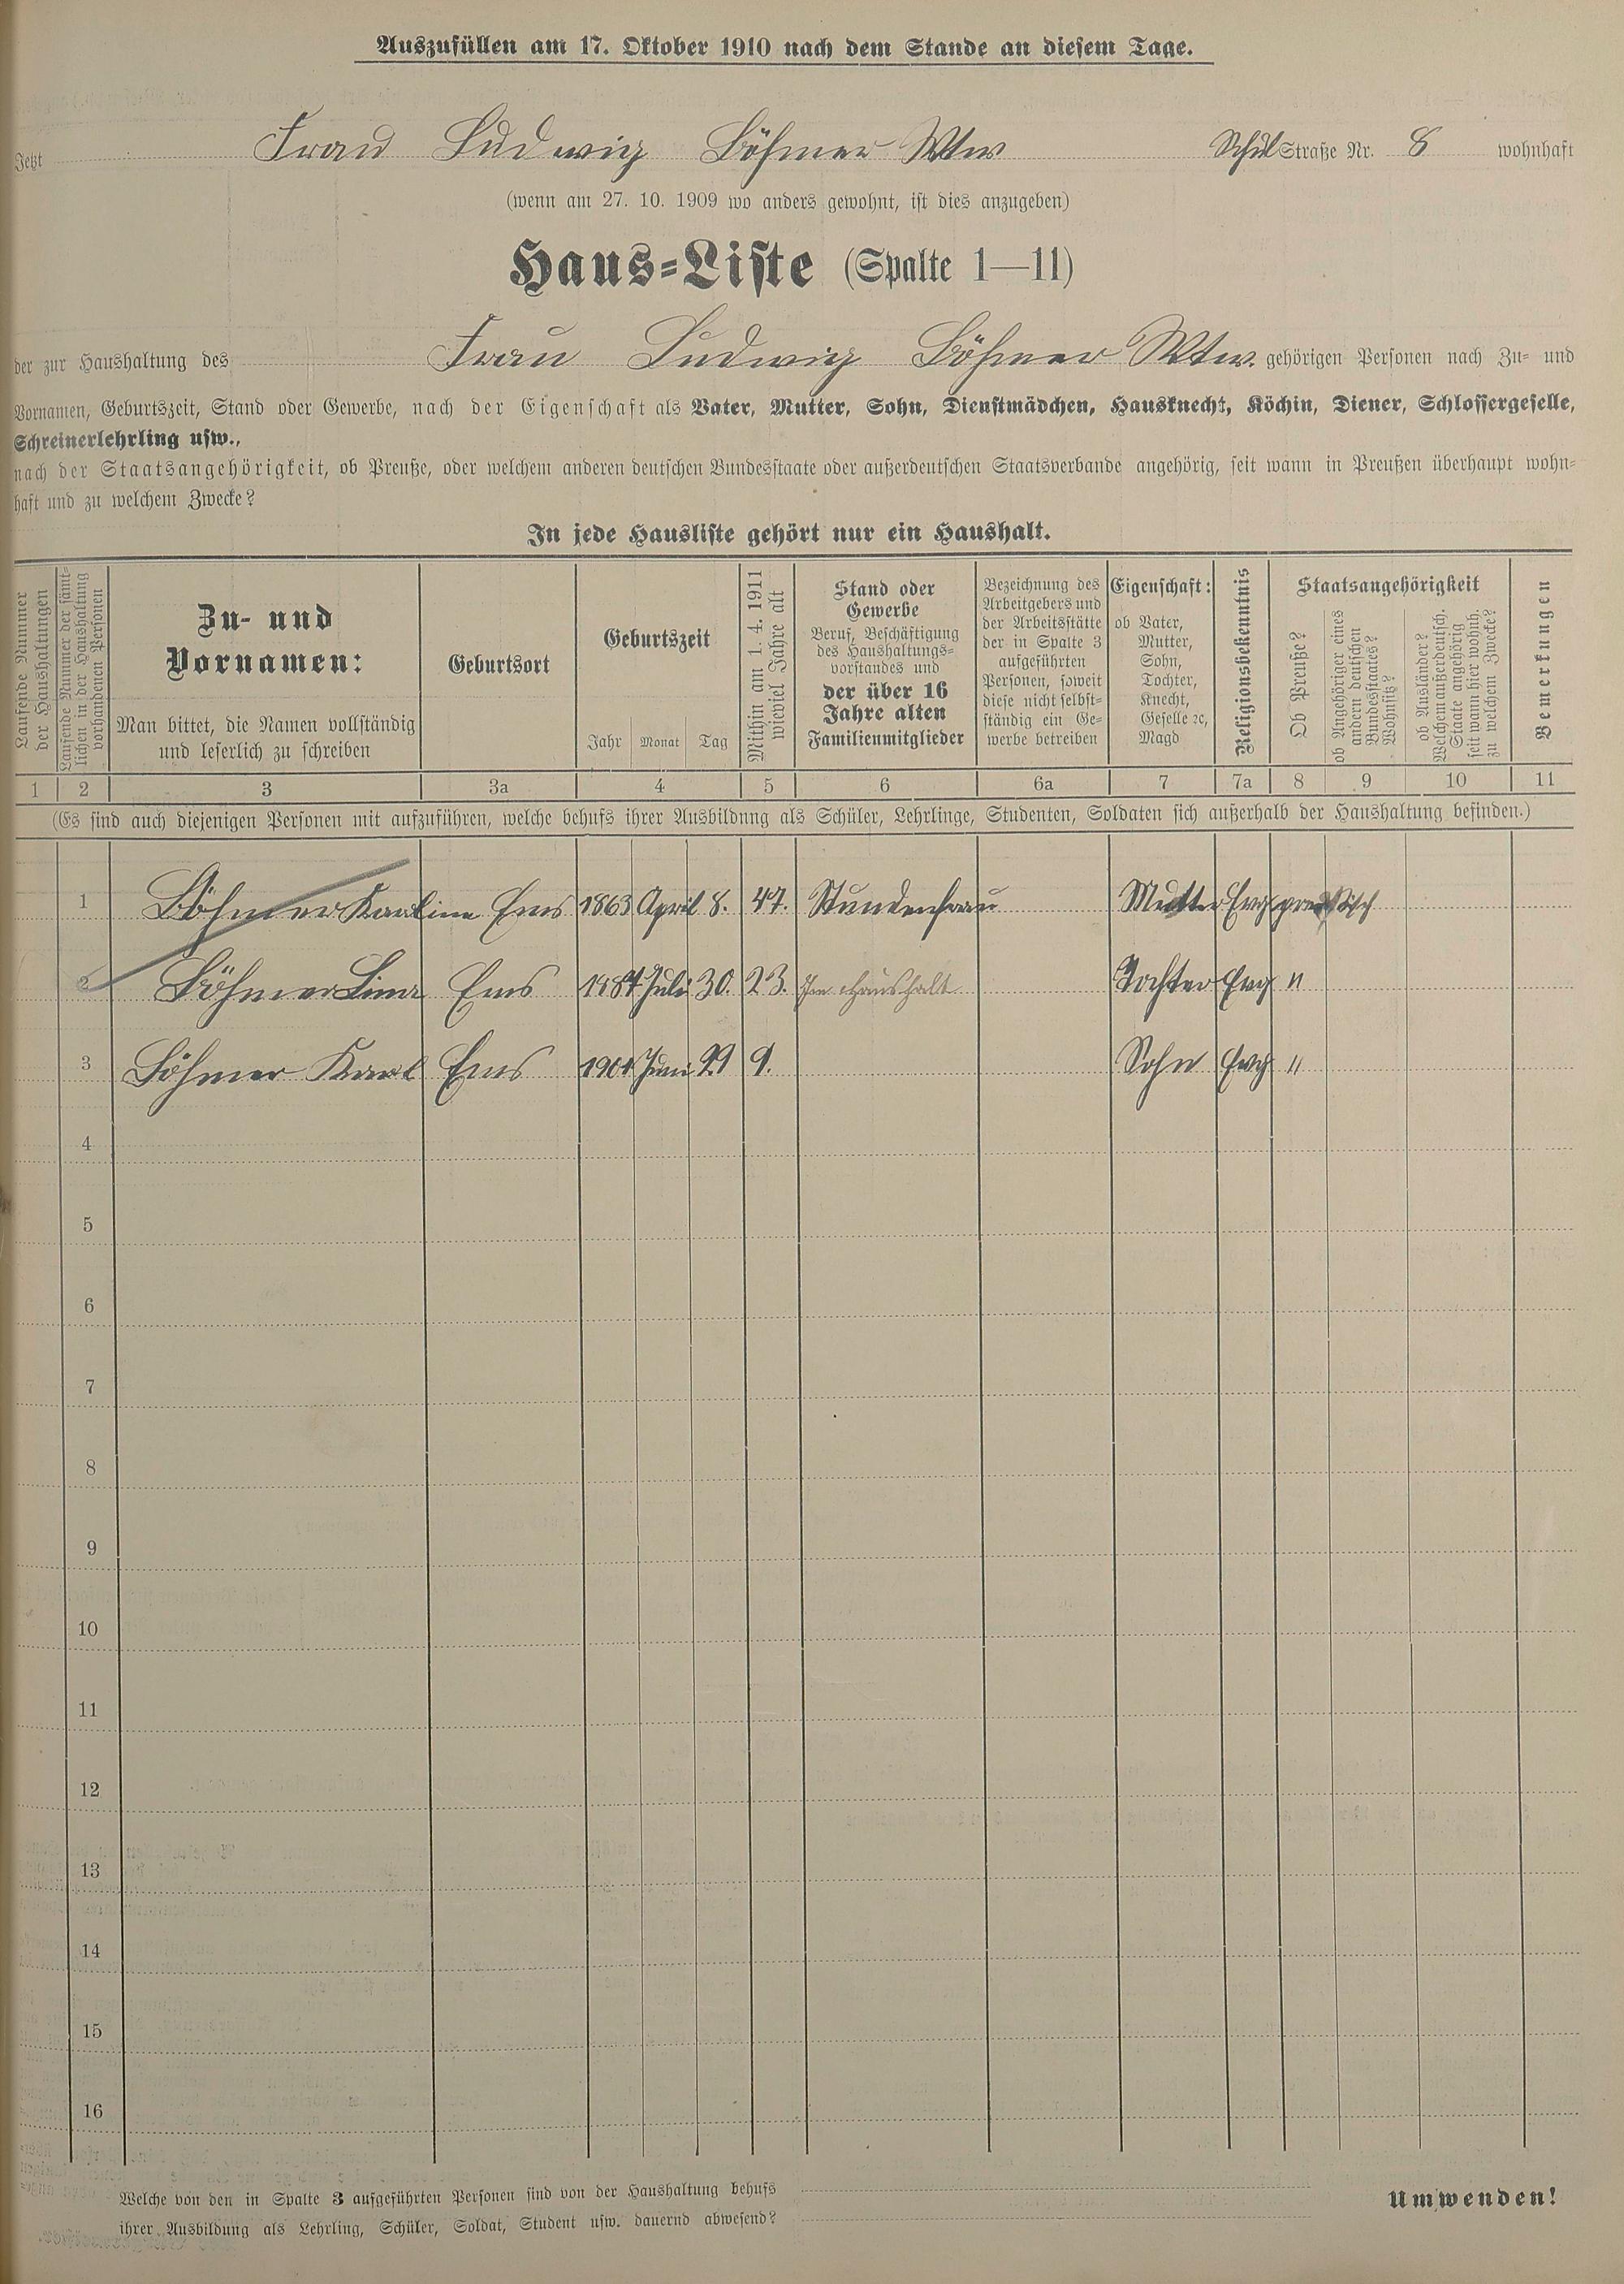 Auszufüllen am 17. Oktober 1910 nach dem Stande an diesem Tage.
Jetzt Frau Ludwig Böhmer Wtw Schul Straße Nr. 8 wohnhaft
(wenn am 27. 10. 1909 wo anders gewohnt, ist dies anzugeben)
Haus-Liste (Spalte 1—11)
der zur Haushaltung des Frau Ludwig Böhmer Wtw. gehörigen Personen nach Zu- und
Vornamen, Geburtszeit, Stand oder Gewerbe, nach der Eigenschaft als Vater, Mutter, Sohn, Dienstmädchen, Hausknecht, Köchin, Diener, Schlossergeselle,
Schreinerlehrling usw.,
nach der Staatsangehörigkeit, ob Preuße, oder welchem anderen deutschen Bundesstaate oder außerdeutschen Staatsverbande angehörig, seit wann in Preußen überhaupt wohn-
haft und zu welchem Zwecke?
In jede Hausliste gehört nur ein Haushalt.
Laufende Nummer
der Haushaltungen
Laufende Nummer der sämt-
lichen in der Haushaltung
vorhandenen Personen
Zu- und
Vornamen:
Man bittet, die Namen vollständig
und leserlich zu schreiben
Geburtsort
Geburtszeit
Jahr Monat Tag
Mithin am 1. 4. 1911
wieviel Jahre alt
Stand oder
Gewerbe
Beruf, Beschäftigung
des Haushaltungs-
vorstandes und
der über 16
Jahre alten
Familienmitglieder
Bezeichnung des
Arbeitgebers und
der Arbeitsstätte
der in Spalte 3
aufgeführten
Personen, soweit
diese nicht selbst-
ständig ein Ge-
werbe betreiben
Eigenschaft:
ob Vater,
Mutter,
Sohn,
Tochter,
Knecht,
Geselle ꝛc,
Magd
Religionsbekenntnis
Staatsangehörigkeit
Ob Preuße?
ob Angehöriger eines
andern deutschen
Bundesstaates?
Wohnsitz?
ob Ausländer?
Welchem außerdeutsch.
Staate angehörig
seit wann hier wohnh.
zu welchem Zwecke?
Bemerkungen
1 2 3 3a 4 5 6 6a 7 7a 8 9 10 11
(Es sind auch diejenigen Personen mit aufzuführen, welche behufs ihrer Ausbildung als Schüler, Lehrlinge, Studenten, Soldaten sich außerhalb der Haushaltung befinden.)
1 Böhmer Karline Ems 1863 April 8. 47. Stundenfrau Mutter Evg preußisch
2 Böhmer Lina Ems 1887 Juli 30. 23. Im Haushalt Tochter Evg "
3 Böhmer Karl Ems 1901 Juni 29 9. Sohn Evg "
4
5
6
7
8
9
10
11
12
13
14
15
16
Welche von den in Spalte 3 aufgeführten Personen sind von der Haushaltung behufs
ihrer Ausbildung als Lehrling, Schüler, Soldat, Student usw. dauernd abwesend?
Umwenden!